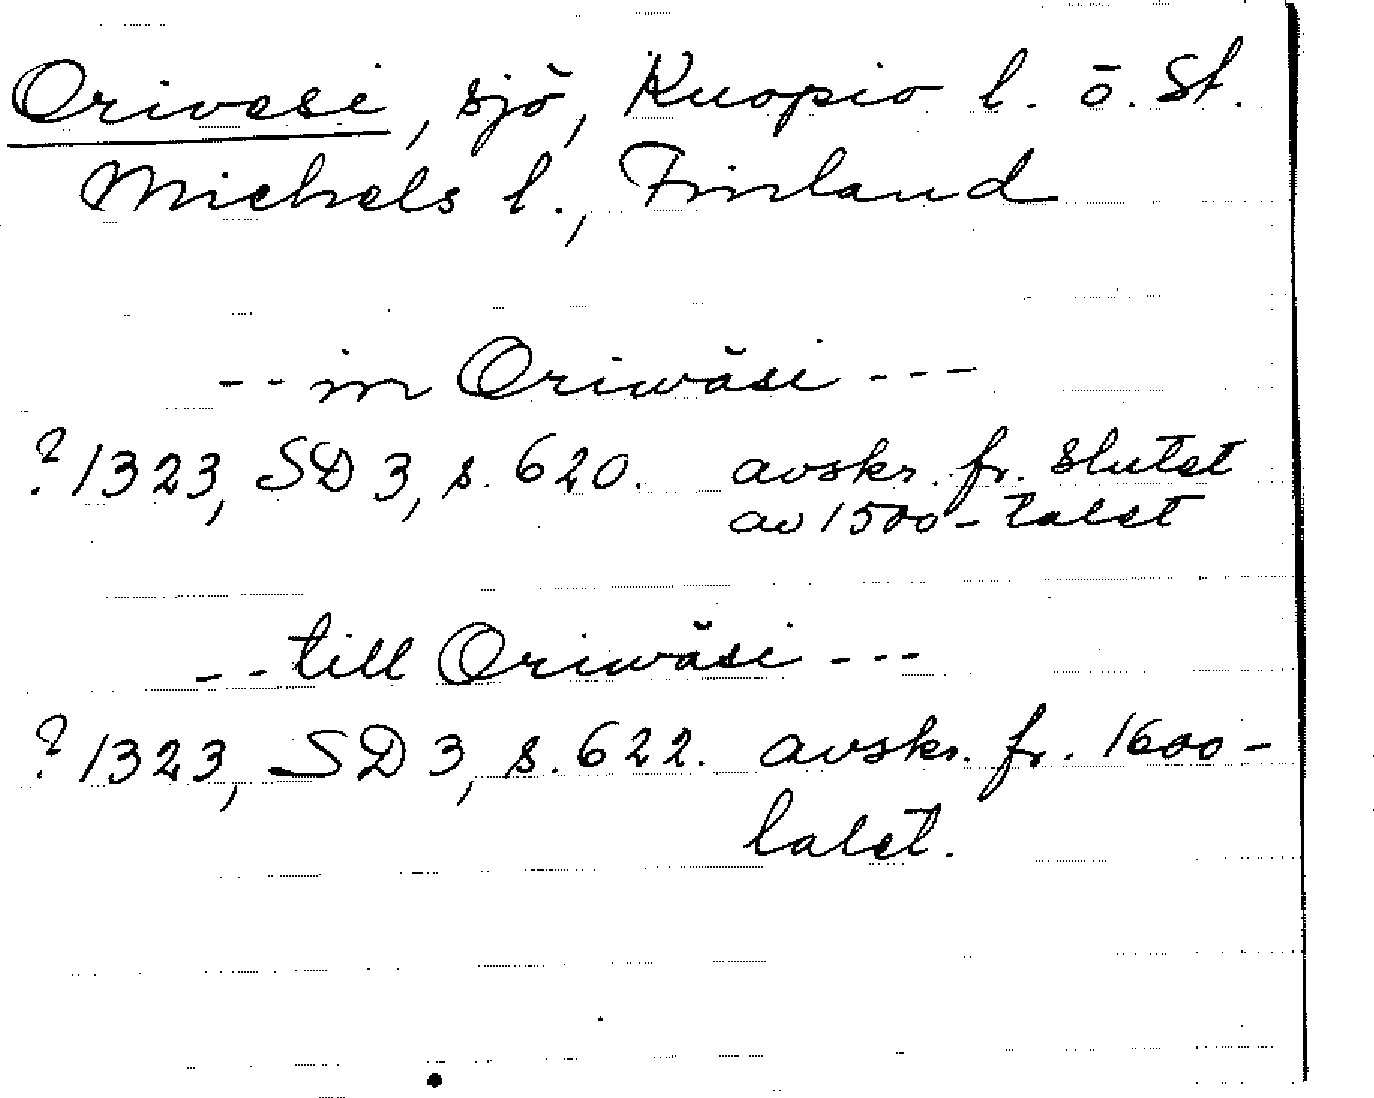 Orivesi, sjö, Kuopio l. o. St.
Michels l., Finland
-- in Oriwäsi ---
? 1323, SD 3, s. 620. avskr. fr. slutet
av 1500-talet
-- till Oriwäsi ---
? 1323, SD 3, s. 622. avskr. fr. 1600-
talet.